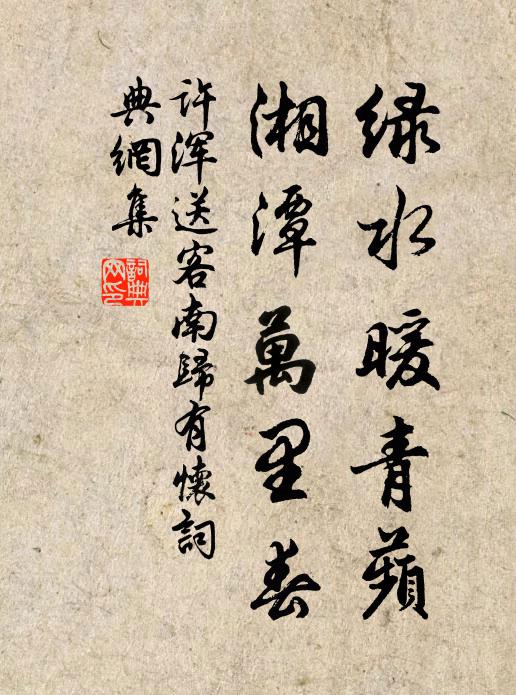 绿水暖青蘋
湘潭萬里春
许渾送客南歸有懷詞
典網集
詞典
网印